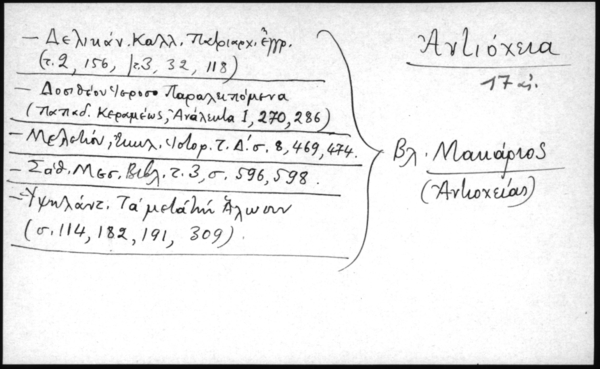 Ἀντιόχεια
17 αἰ.
— Δελικάν. Καλλ. Πατριαρχ. Ἔγγρ.
(τ. 2, 156, τ. 3, 32, 118)
— Δοσιθέου Ἱεροσο Παραλειπόμενα
(Παπαδ. Κεραμέως, Ἀνάλεκτα Ι, 270, 286)
— Μελετίου, Ἐκκλ. Ἱστορ. τ. Δ΄. σ. 8, 469, 474.
— Σάθ. Μεσ. Βιβλ. τ. 3, σ. 596, 598.
— Ὑψηλάντ. Τά μετά τήν Ἅλωσιν
(σ. 114, 182, 191, 309).
Βλ. Μακάριος
(Ἀντιοχείας)